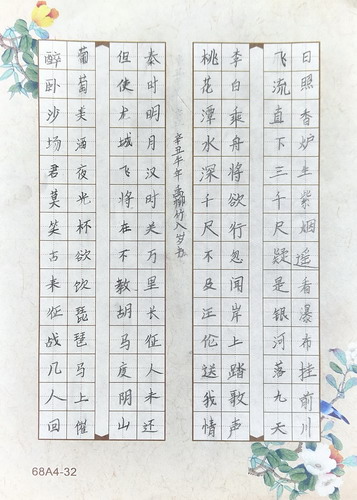 日照香炉生紫烟遥看瀑布挂前川
飞流直下三千尺疑是银河落九天
李白乘舟将欲行忽闻岸上踏歌声
桃花潭水深千尺不及汪伦送我情
辛丑年
秦时明月汉时关万里长征人未还
但使龙城飞将在不教胡马度阴山
葡萄美酒夜光杯欲饮琵琶马上催
醉卧沙场君莫笑古来征战几人回
68A4-32